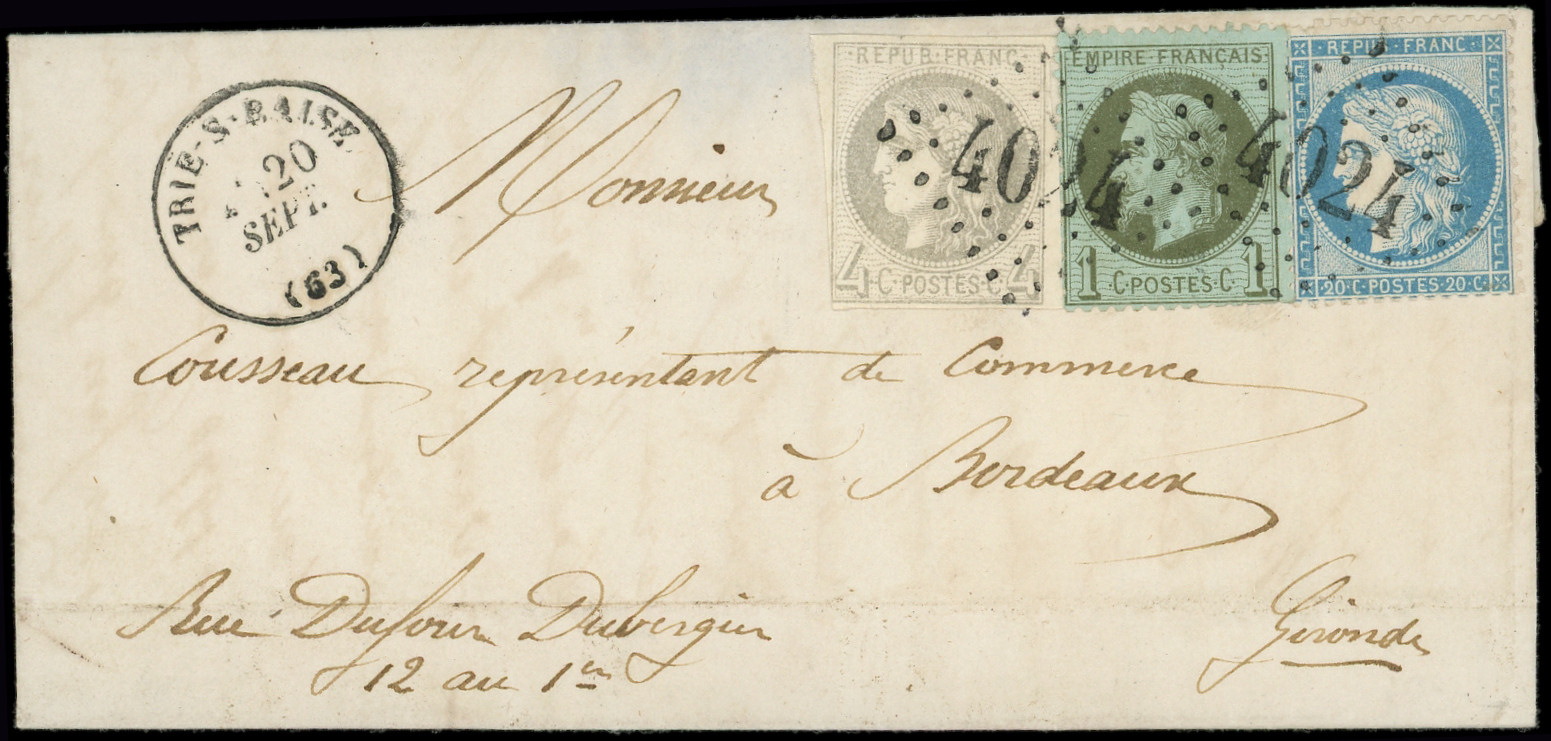 TRIE-S-BAISE
20
SEPT.
(63)
REPUB·FRANC·
4 C·POSTES·C· 4
EMPIRE·FRANÇAIS
1 ·C·POSTES·C· 1
REPUB·FRANC·
20·C·POSTES·20·C·
4024
4024
Monsieur
Cousseau représentant de Commerce
à Bordeaux
Rue Dufour Dubergier
Gironde
12 au 1er